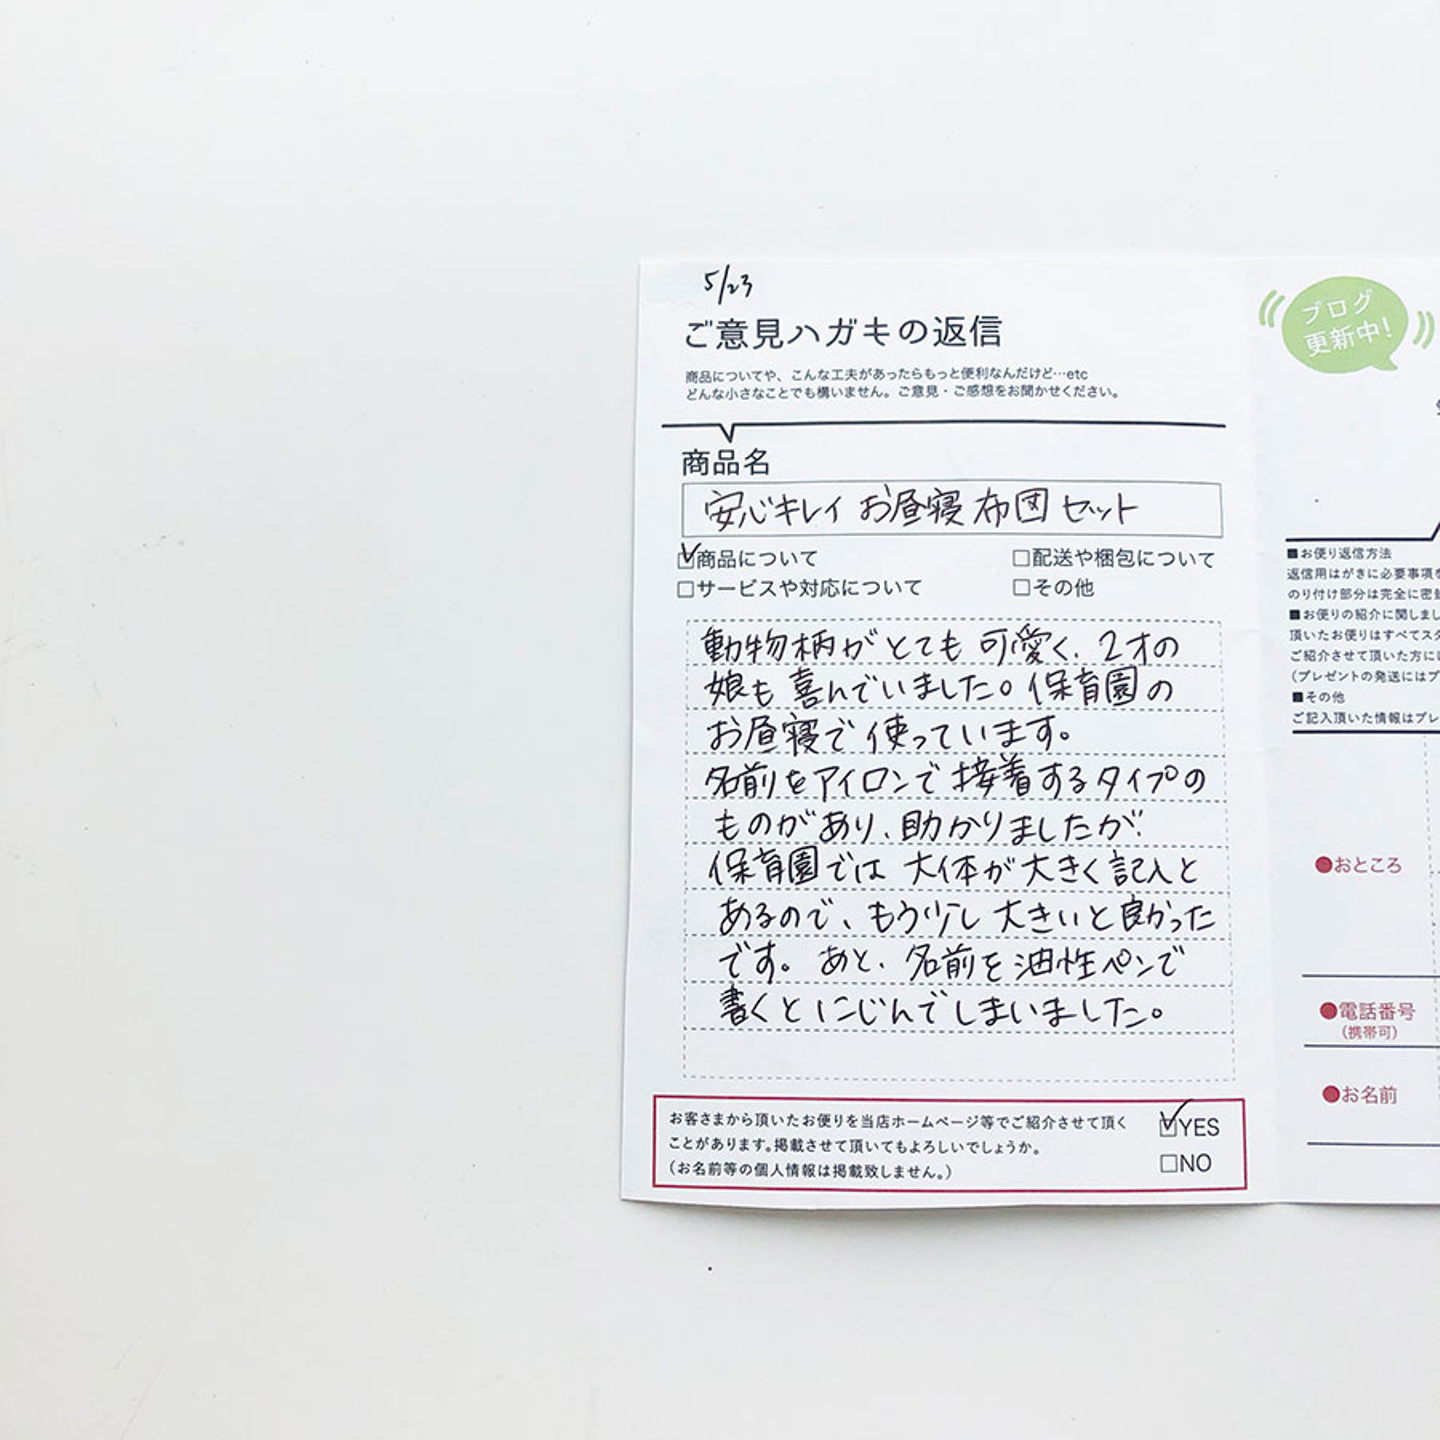 5/23
ご意見ハガキの返信
商品についてや、こんな工夫があったらもっと便利なんだけど…etc
どんな小さなことでも構いません。ご意見・ご感想をお聞かせください。
商品名
安心キレイ お昼寝布団セット
商品について
配送や梱包について
サービスや対応について
その他
動物柄がとても可愛く、2才の
娘も喜んでいました。保育園の
お昼寝で使っています。
名前をアイロンで接着するタイプの
ものがあり、助かりましたが、
保育園では大体が大きく記入と
あるので、もう少し大きいと良かった
です。あと、名前を油性ペンで
書くとにじんでしまいました。
お客さまから頂いたお便りを当店ホームページ等でご紹介させて頂く
ことがあります。掲載させて頂いてもよろしいでしょうか。
(お名前等の個人情報は掲載致しません。)
YES
NO
ブログ
更新中!
■お便り返信方法
返信用はがきに必要事項を
のり付け部分は完全に密封
■お便りの紹介に関しまし
頂いたお便りはすべてスタ
ご紹介させて頂いた方に
(プレゼントの発送にはプ
■その他
ご記入頂いた情報はプレ
●おところ
●電話番号
(携帯可)
●お名前